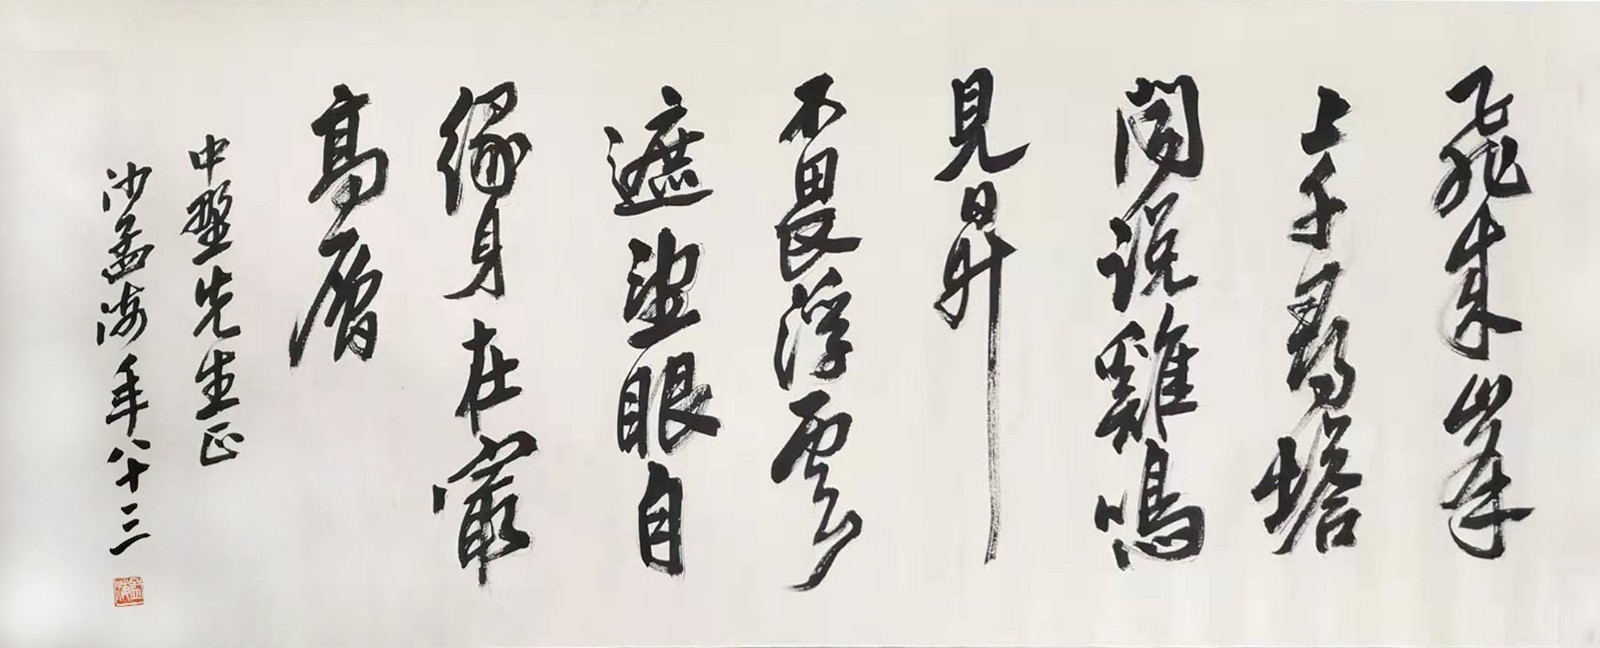 飛来峯
上千尋塔
聞說雞鳴
見日昇
不畏浮雲
遮望眼自
緣身在最
高層
中野先生正
沙孟海年八十三